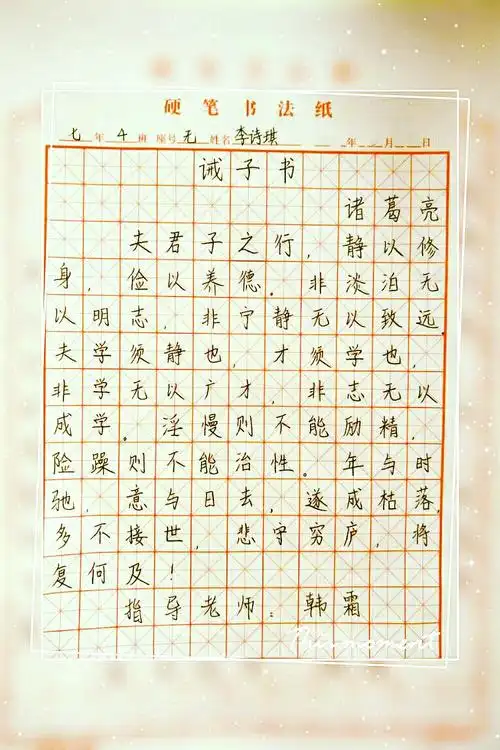 硬笔书法纸
七年4班 座号元 姓名李诗琪 年 月 日
诫子书
诸葛亮
夫君子之行，静以修
身，俭以养德。非淡泊无
以明志，非宁静无以致远。
夫学须静也，才须学也，
非学无以广才，非志无以
成学。淫慢则不能励精，
险躁则不能治性。年与时
驰，意与日去，遂成枯落，
多不接世，悲守穷庐，将
复何及！
指导老师：韩霜